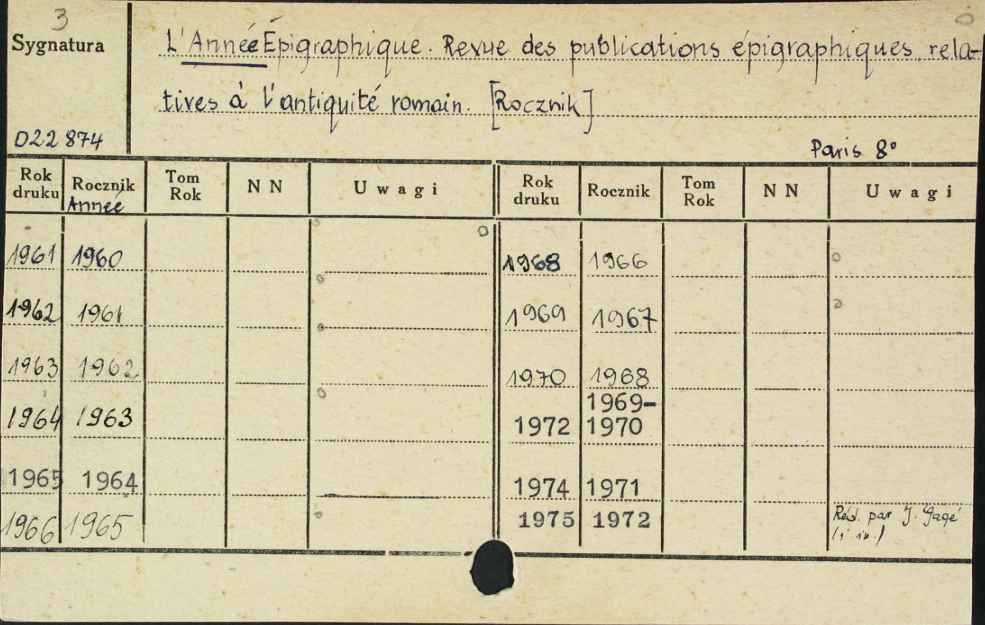 3
Sygnatura
L'Anneé Épigraphique. Revue des publications épigraphiques rela-
tives à l'antiquité romain. [Rocznik]
D22 874
Paris 8°
Rok druku Rocznik Anneé Tom Rok NN Uwagi Rok druku Rocznik Tom Rok NN Uwagi
1961 1960 1968 1966
1962 1961 1969 1967
1963 1962 1970 1968
1964 1963 1972 1969-1970
1965 1964 1974 1971
1966 1965 1975 1972 Réd. par J. Gagé
(i in.)